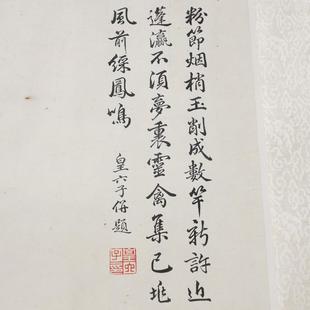 粉節烟梢玉削成數竿新許近
蓬瀛不須夢裏靈禽集已兆
風前綵鳳鳴
皇六子併題